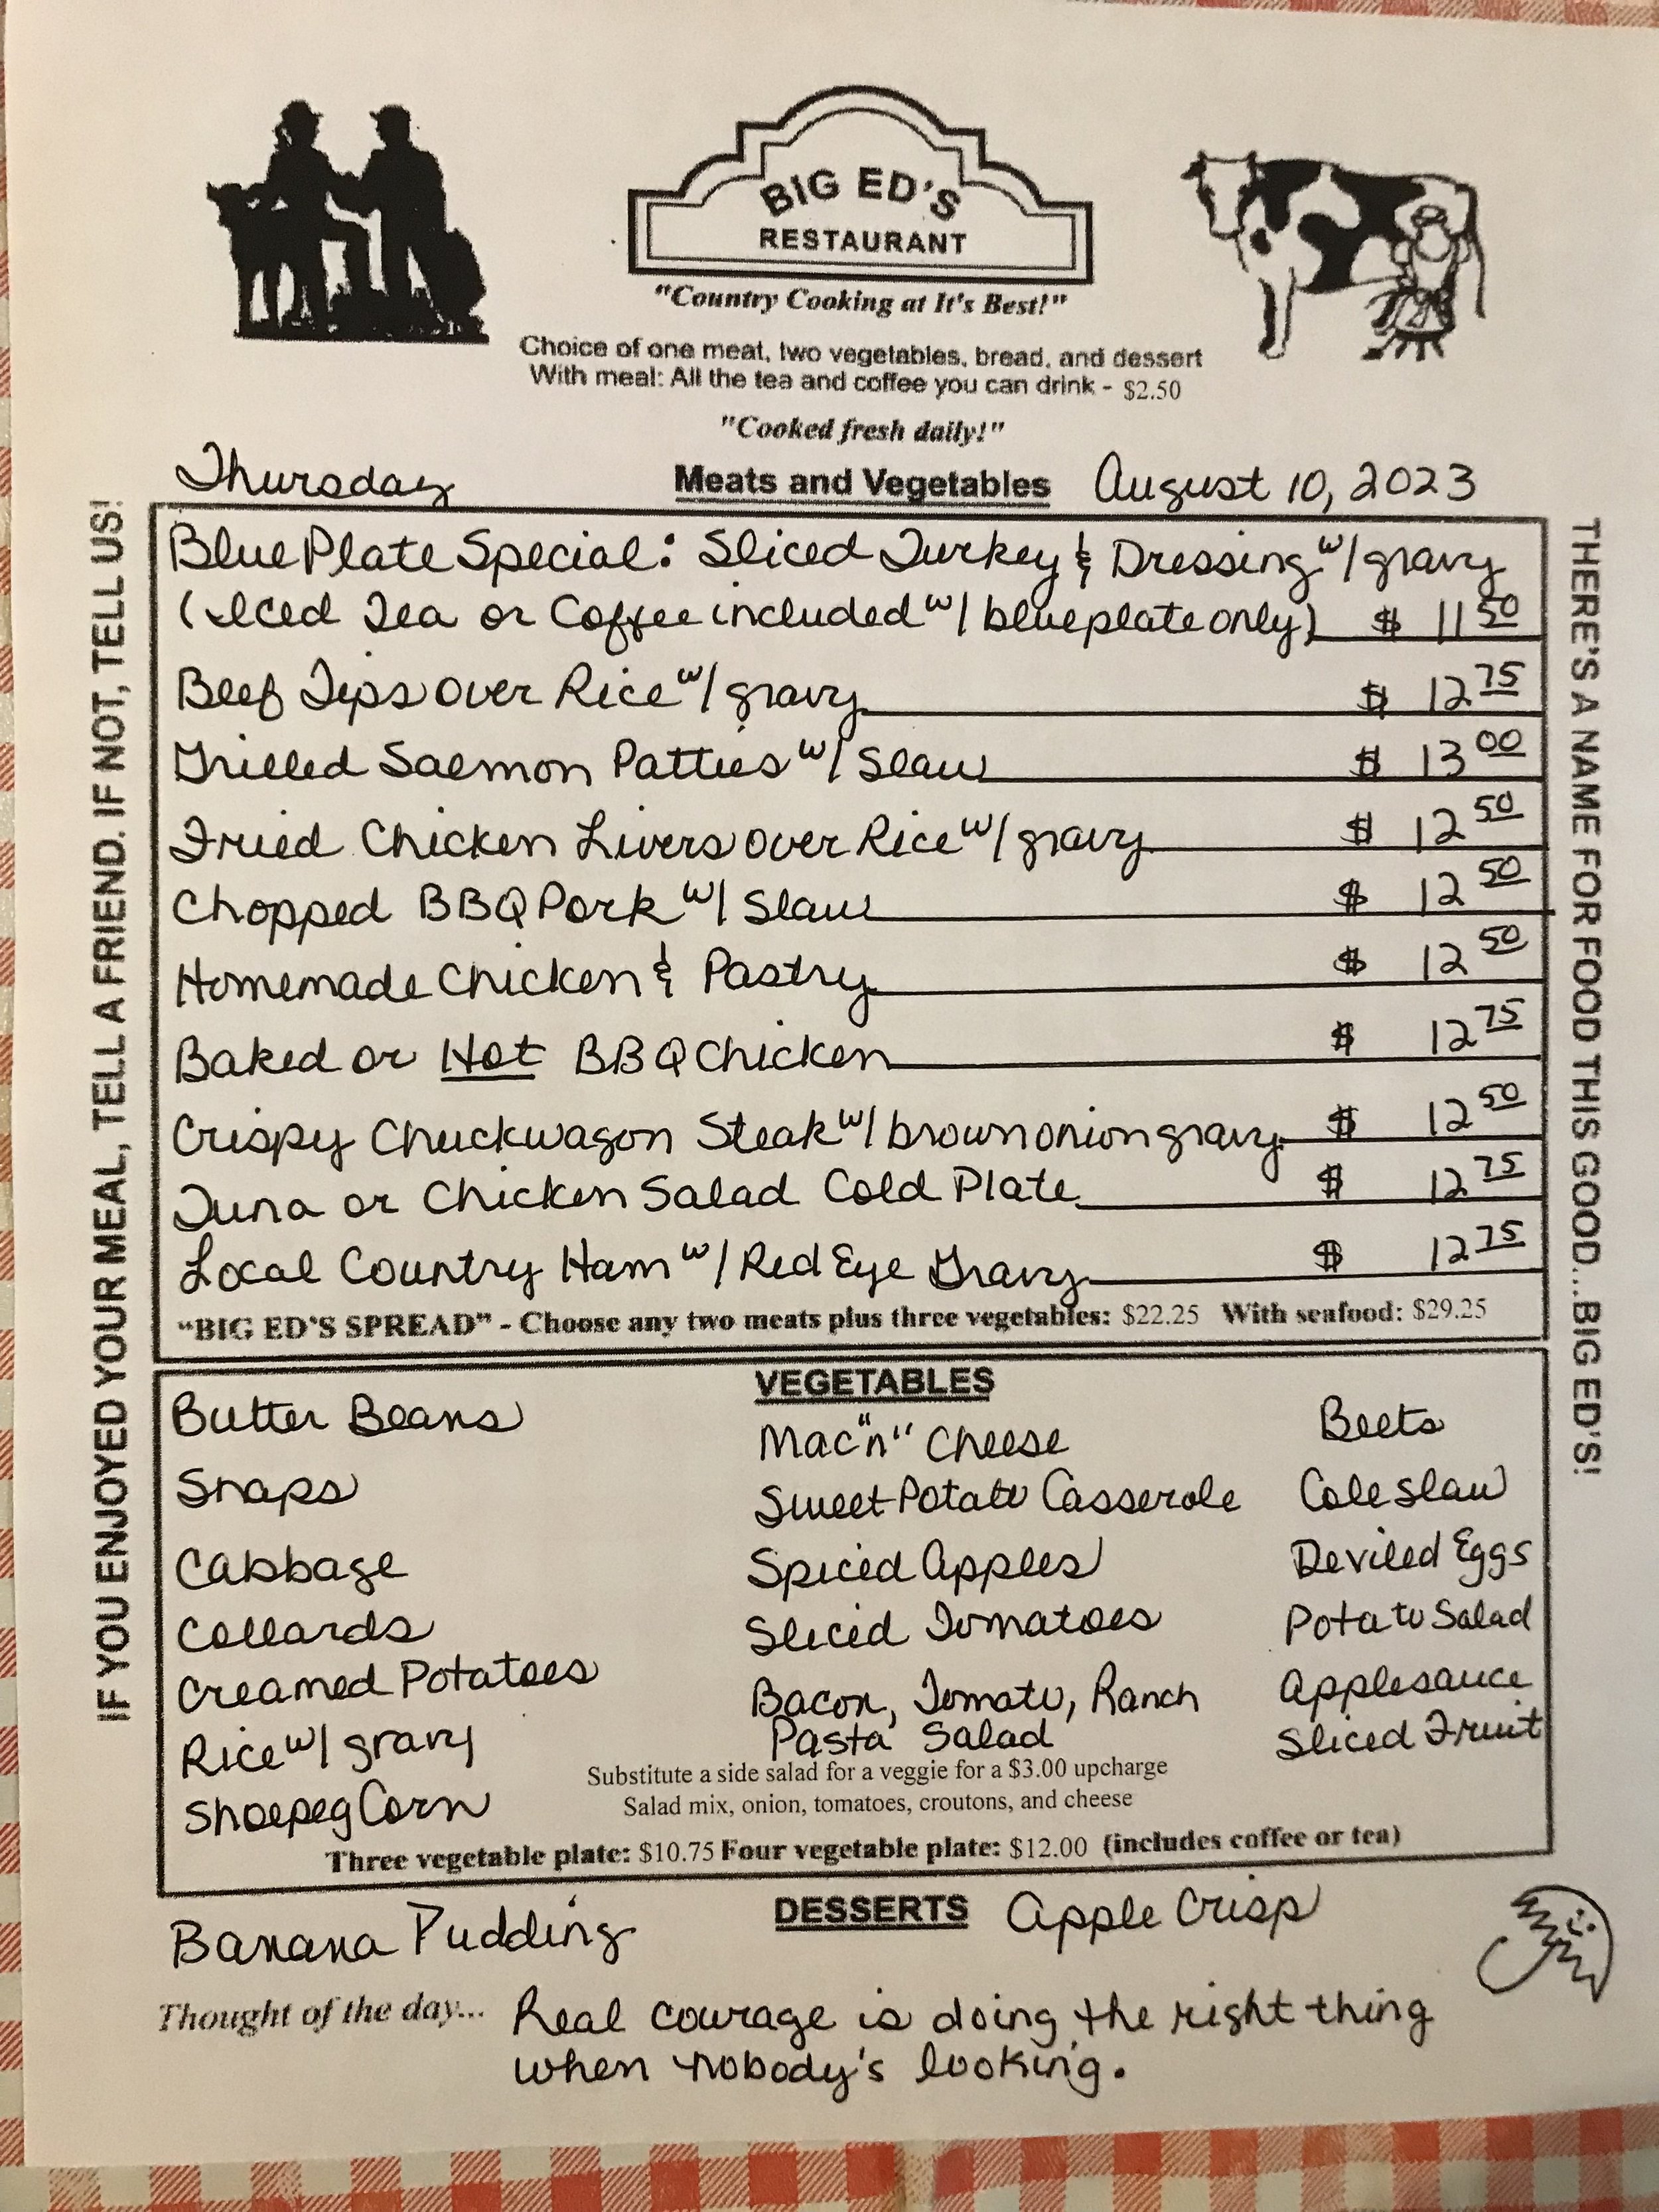 BIG ED'S
RESTAURANT
"Country Cooking at It's Best!"
Choice of one meat, two vegetables, bread, and dessert
With meal: All the tea and coffee you can drink - $2.50
"Cooked fresh daily!"
Thursday Meats and Vegetables August 10, 2023
Blue Plate Special: Sliced Turkey & Dressing w/ gravy
(Iced Tea or Coffee included w/ blueplate only) $ 11 50
Beef Tips over Rice w/ gravy $ 12 75
Grilled Salmon Patties w/ Slaw $ 13 00
Fried Chicken Livers over Rice w/ gravy $ 12 50
Chopped BBQ Pork w/ Slaw $ 12 50
Homemade Chicken & Pastry $ 12 50
Baked or Hot BBQ Chicken $ 12 75
Crispy Chuckwagon Steak w/ brown onion gravy $ 12 50
Tuna or Chicken Salad Cold Plate $ 12 75
Local Country Ham w/ Red Eye Gravy $ 12 75
"BIG ED'S SPREAD" - Choose any two meats plus three vegetables: $22.25 With seafood: $29.25
VEGETABLES
Butter Beans
Snaps
Cabbage
Collards
Creamed Potatoes
Rice w/ gravy
Shoepeg Corn
Mac "n" Cheese
Sweet Potato Casserole
Spiced Apples
Sliced Tomatoes
Bacon, Tomato, Ranch
Pasta Salad
Beets
Cole Slaw
Deviled Eggs
Potato Salad
Applesauce
Sliced Fruit
Substitute a side salad for a veggie for a $3.00 upcharge
Salad mix, onion, tomatoes, croutons, and cheese
Three vegetable plate: $10.75 Four vegetable plate: $12.00 (includes coffee or tea)
DESSERTS
Banana Pudding
Apple Crisp
Thought of the day... Real courage is doing the right thing
when nobody's looking.
IF YOU ENJOYED YOUR MEAL, TELL A FRIEND. IF NOT, TELL US!
THERE'S A NAME FOR FOOD THIS GOOD...BIG ED'S!